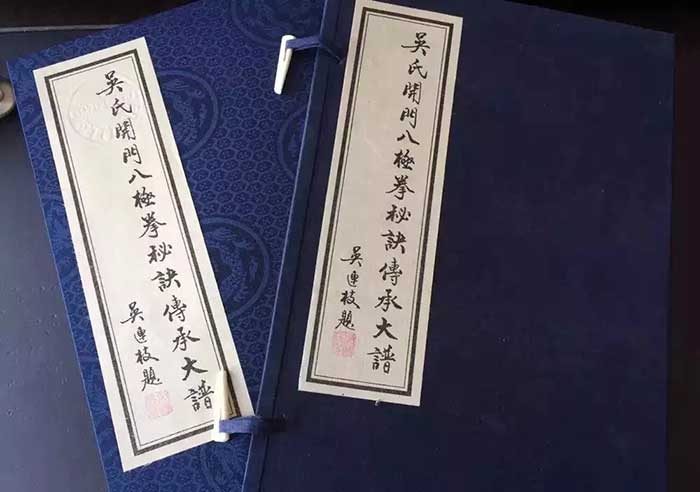 吳氏開門八極拳秘訣傳承大譜
吳連枝題
吳氏開門八極拳秘訣傳承大譜
吳連枝題